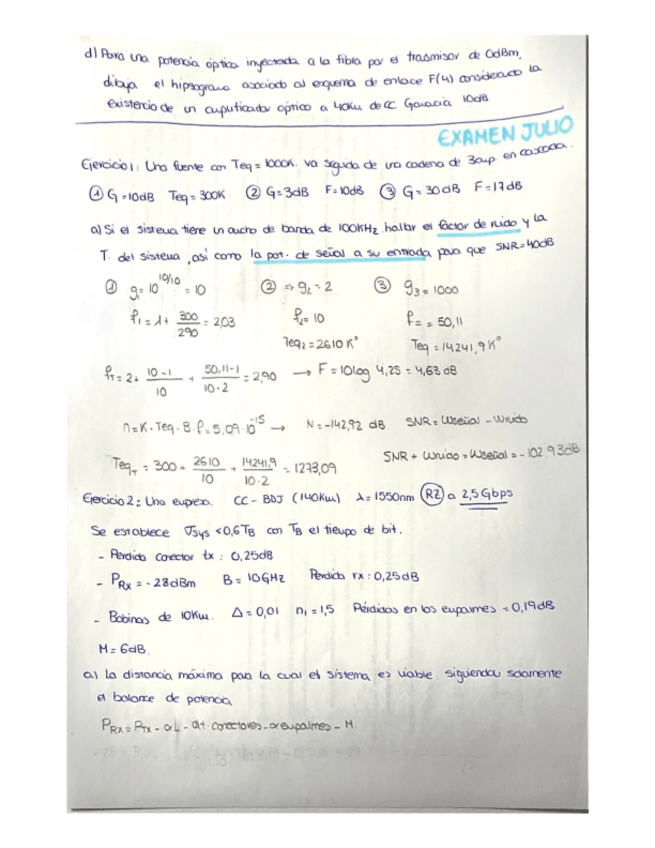 d) Para una potencia óptica inyectada a la fibra por el trasmisor de 0dBm,
dibuja el hipsograma asociado al esquema de enlace F(4) considerando la
existencia de un amplificador óptico a 40Km de CC Ganancia 10dB
EXAMEN JULIO
Ejercicio 1: Una fuente con Teq = 1000K. va seguida de una cadena de 3amp en cascada.
① G = 10dB Teq = 300K ② G = 3dB F = 10dB ③ G = 30dB F = 17dB
a) Si el sistema tiene un ancho de banda de 100KHz hallar el factor de ruido y la
T. del sistema, así como la pot. de señal a su entrada, para que SNR = 40dB
① g₁ = 10^10/10 = 10 ② => g₂ = 2 ③ g₃ = 1000
f₁ = 1 + 300/290 = 2,03 f₂ = 10 f = = 50,11
Teq₂ = 2610 K° Teq = 14241,9 K°
f_T = 2 + 10-1/10 + 50,11-1/10·2 = 2,90 → F = 10log 4,25 = 4,63 dB
n = K · Teq · B · f = 5,09·10^-15 → N = -142,92 dB SNR = Wseñal - Wruido
SNR + Wruido = Wseñal = -102,93dB
Teq_T = 300 + 2610/10 + 14241,9/10·2 = 1273,09
Ejercicio 2: Una empresa CC - BDJ (140Km) λ = 1550nm (RZ) a 2,5Gbps
Se establece σsys < 0,6 T_B con T_B el tiempo de bit.
- Perdida conector tx : 0,25dB
- P_Rx = -28dBm B = 10GHz Perdida rx : 0,25dB
- Bobinas de 10Km. Δ = 0,01 n₁ = 1,5 Pérdidas en los empalmes = 0,19dB
M = 6dB.
a) La distancia máxima para la cual el sistema es viable siguiendo solamente
el balance de potencia
P_Rx = P_Tx - αL - αt. conectores - αempalmes - M